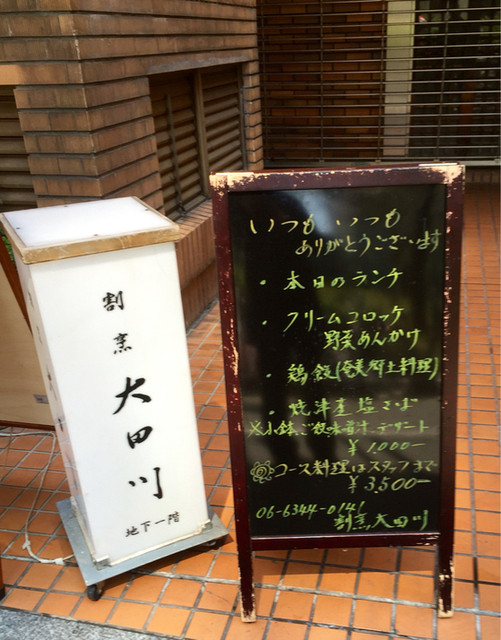 割烹
大田川
地下一階
いつも いつも
ありがとうございます
・本日のランチ
・クリームコロッケ
野菜あんかけ
・鶏飯(奄美郷土料理)
・焼津産塩さば
※小鉢、ご飯、味噌汁、デザート
¥1,000-
コース料理はスタッフまで
¥3,500-
06-6344-0141
割烹 大田川